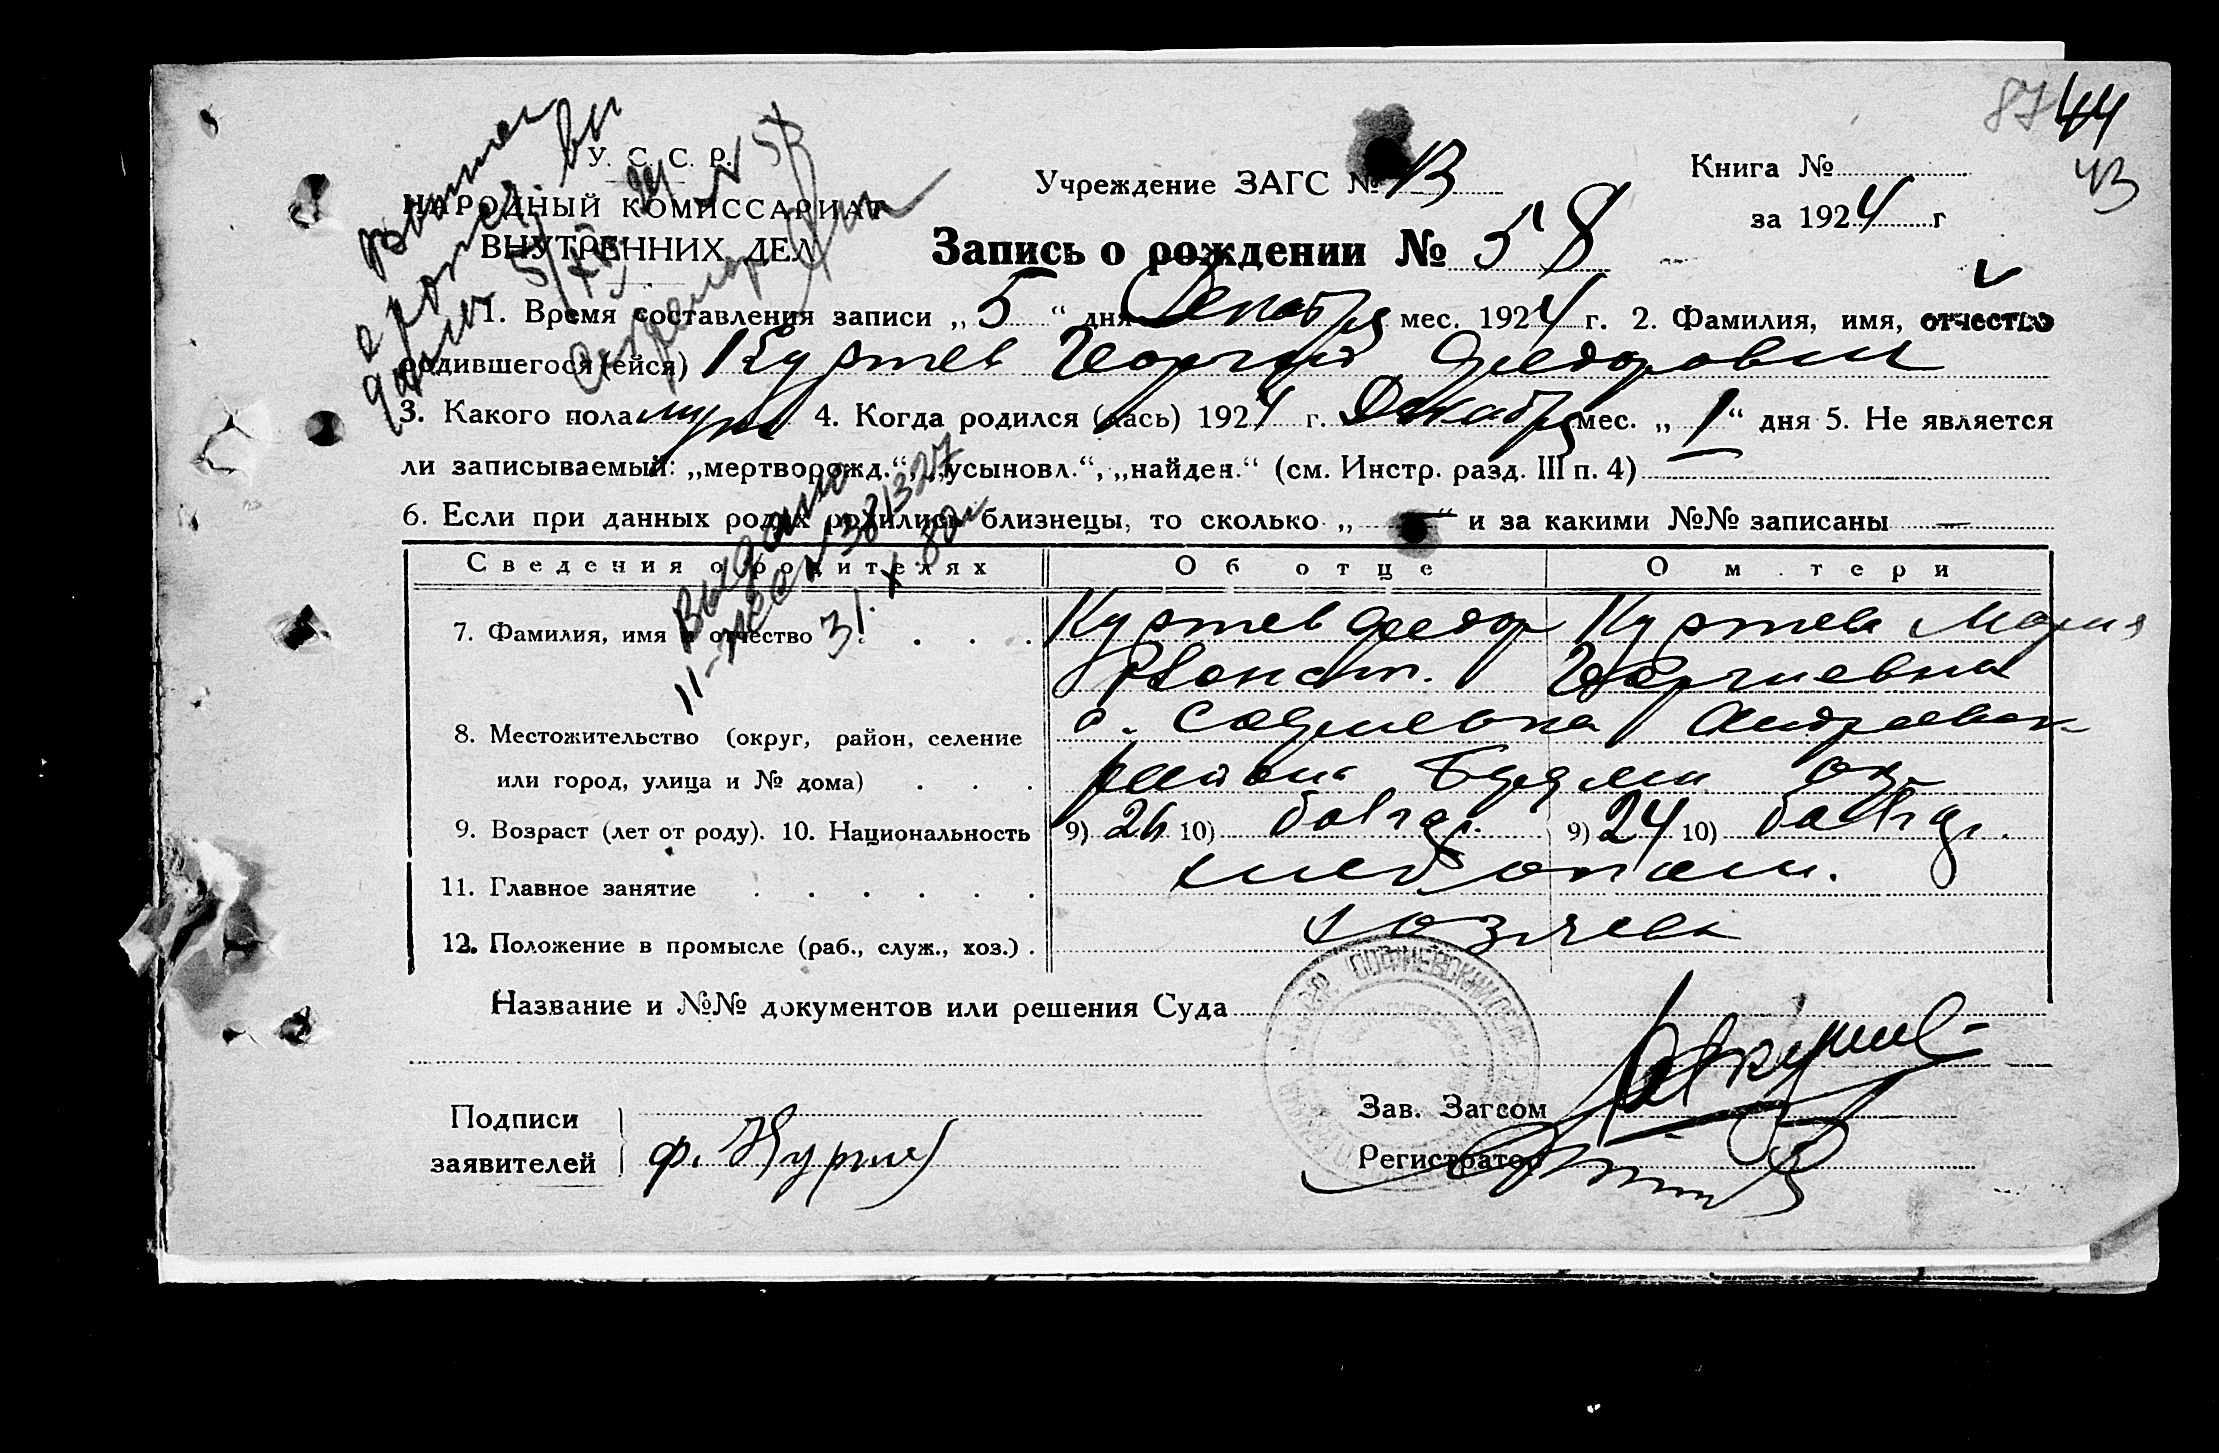 87 44
43
У. С. С. Р.
НАРОДНЫЙ КОМИССАРИАТ
ВНУТРЕННИХ ДЕЛ
Учреждение ЗАГС № 43
Книга №
за 1924 г
Запись о рождении № 58
1. Время составления записи „5“ дня Декабря мес. 1924 г. 2. Фамилия, имя, отчество
родившегося (ейся) Куртев Георгий Федорович
3. Какого пола муж 4. Когда родился (лась) 1924 г. Декабря мес. „1“ дня 5. Не является
ли записываемый: „мертворожд.“, „усыновл.“, „найден.“ (см. Инстр. разд. III п. 4)
6. Если при данных родах родились близнецы, то сколько „—“ и за какими №№ записаны —
Выдано
31. X 80
Сведения о родителях Об отце О матери
7. Фамилия, имя и отчество . . . . Куртев Федор Куртева Мария
Конст. Георгиевна
8. Местожительство (округ, район, селение с. Софиевка Андреевск
или город, улица и № дома) . . . района Бердян окр
9. Возраст (лет от роду). 10. Национальность 9) 26 10) болгар. 9) 24 10) болгар.
11. Главное занятие . . . . . . хлебопаш.
12. Положение в промысле (раб., служ., хоз.) . хозяева
Название и №№ документов или решения Суда
Подписи
заявителей ф. Куртев
Зав. Загсом
Регистратор